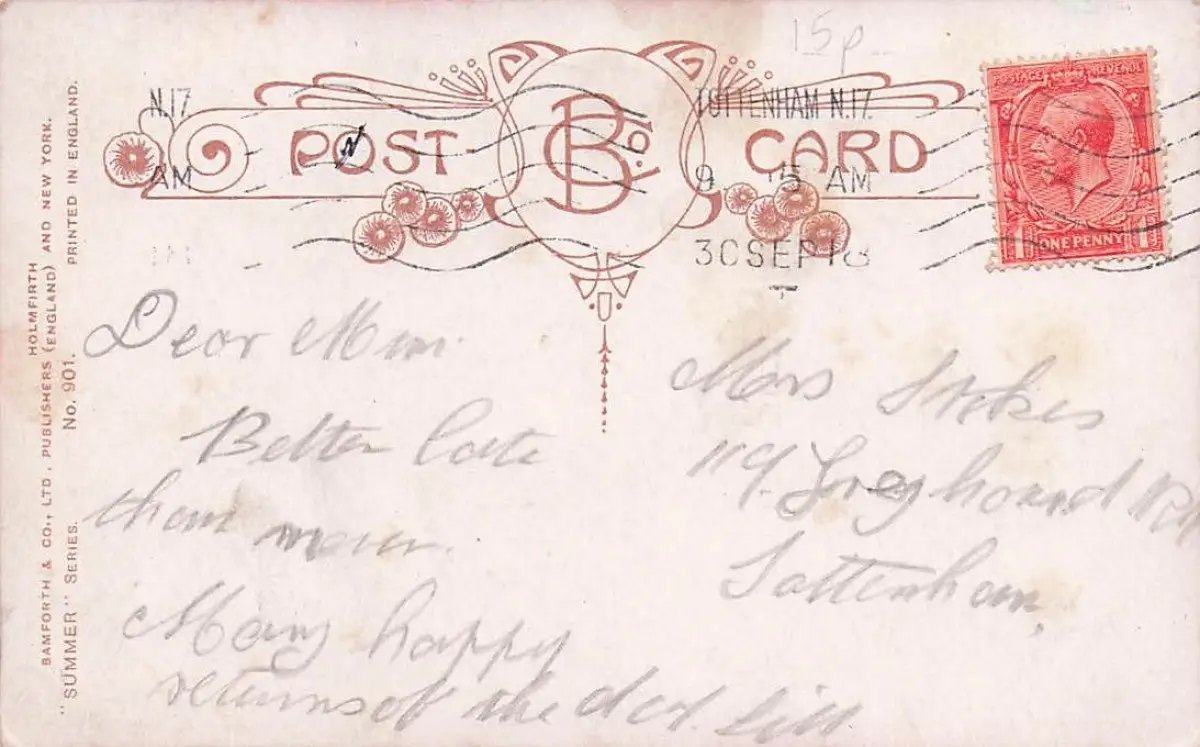 15p
N.17
AM
TOTTENHAM N.17.
9 15 AM
30 SEP 18
POST CARD
B & Co. Ld.
POSTAGE REVENUE
1 ONE PENNY 1
BAMFORTH & CO., LTD., PUBLISHERS HOLMFIRTH (ENGLAND) AND NEW YORK.
"SUMMER" SERIES. No. 901. PRINTED IN ENGLAND.
Dear Mum.
Better late
than never.
Many happy
returns of the day. Lill.
Mrs Stokes
119. Greyhound Rd
Tottenham,